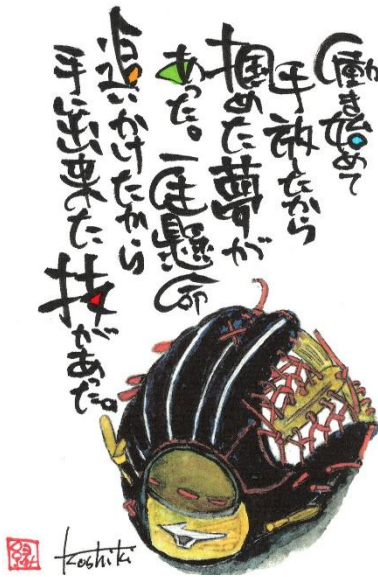 働き始めて
手放したから
掴めた夢が
あった。一生懸命
追いかけたから
手に出来た技があった。
縁
Koshiki